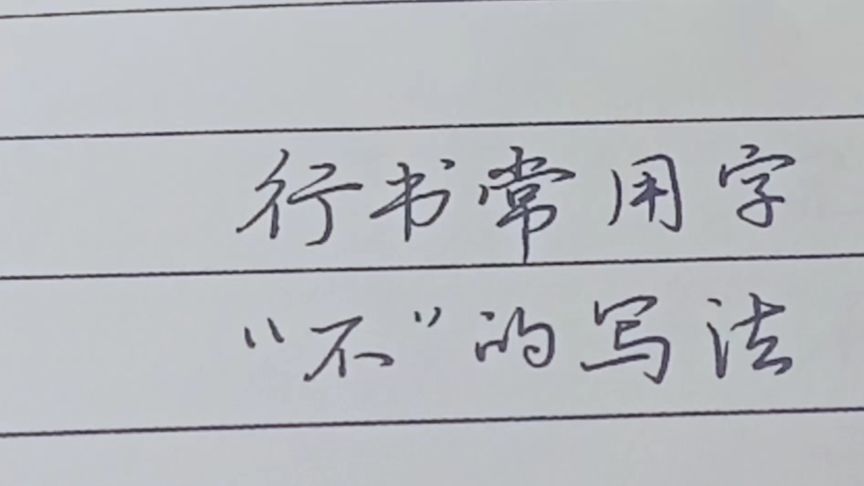 行书常用字
“不”的写法